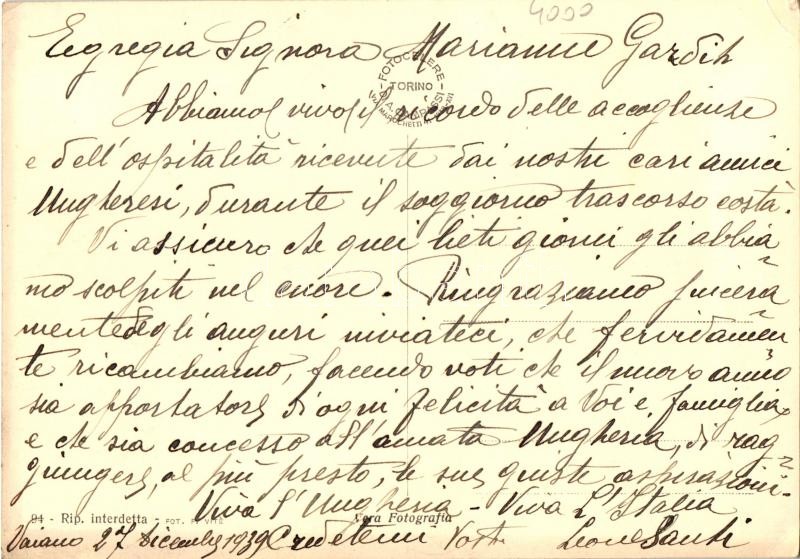 4000
Egregia Signora Marianne
FOTOCELERE
TORINO
Abbiamo vivo il ricordo delle accoglienze
e dell'ospitalità ricevute dai nostri cari amici
Ungheresi, durante il soggiorno trascorso costà.
Vi assicuro che quei lieti giorni gli abbia
mo scolpiti nel cuore. Ringraziamo sincera
mente degli auguri inviateci, che fervidamen
te ricambiamo, facendo voti che il nuovo anno
sia apportatore di ogni felicità a Voi e famiglia,
e che sia concesso all'amata Ungheria, di rag
giungere, al più presto, le sue giuste aspirazioni.
Viva l'Ungheria - Viva L'Italia
94 - Rip. interdetta - FOT. P. VITÈ
Vera Fotografia
Vaiano 27 Dicembre 1939 Credetemi Vostri
Leone Santi